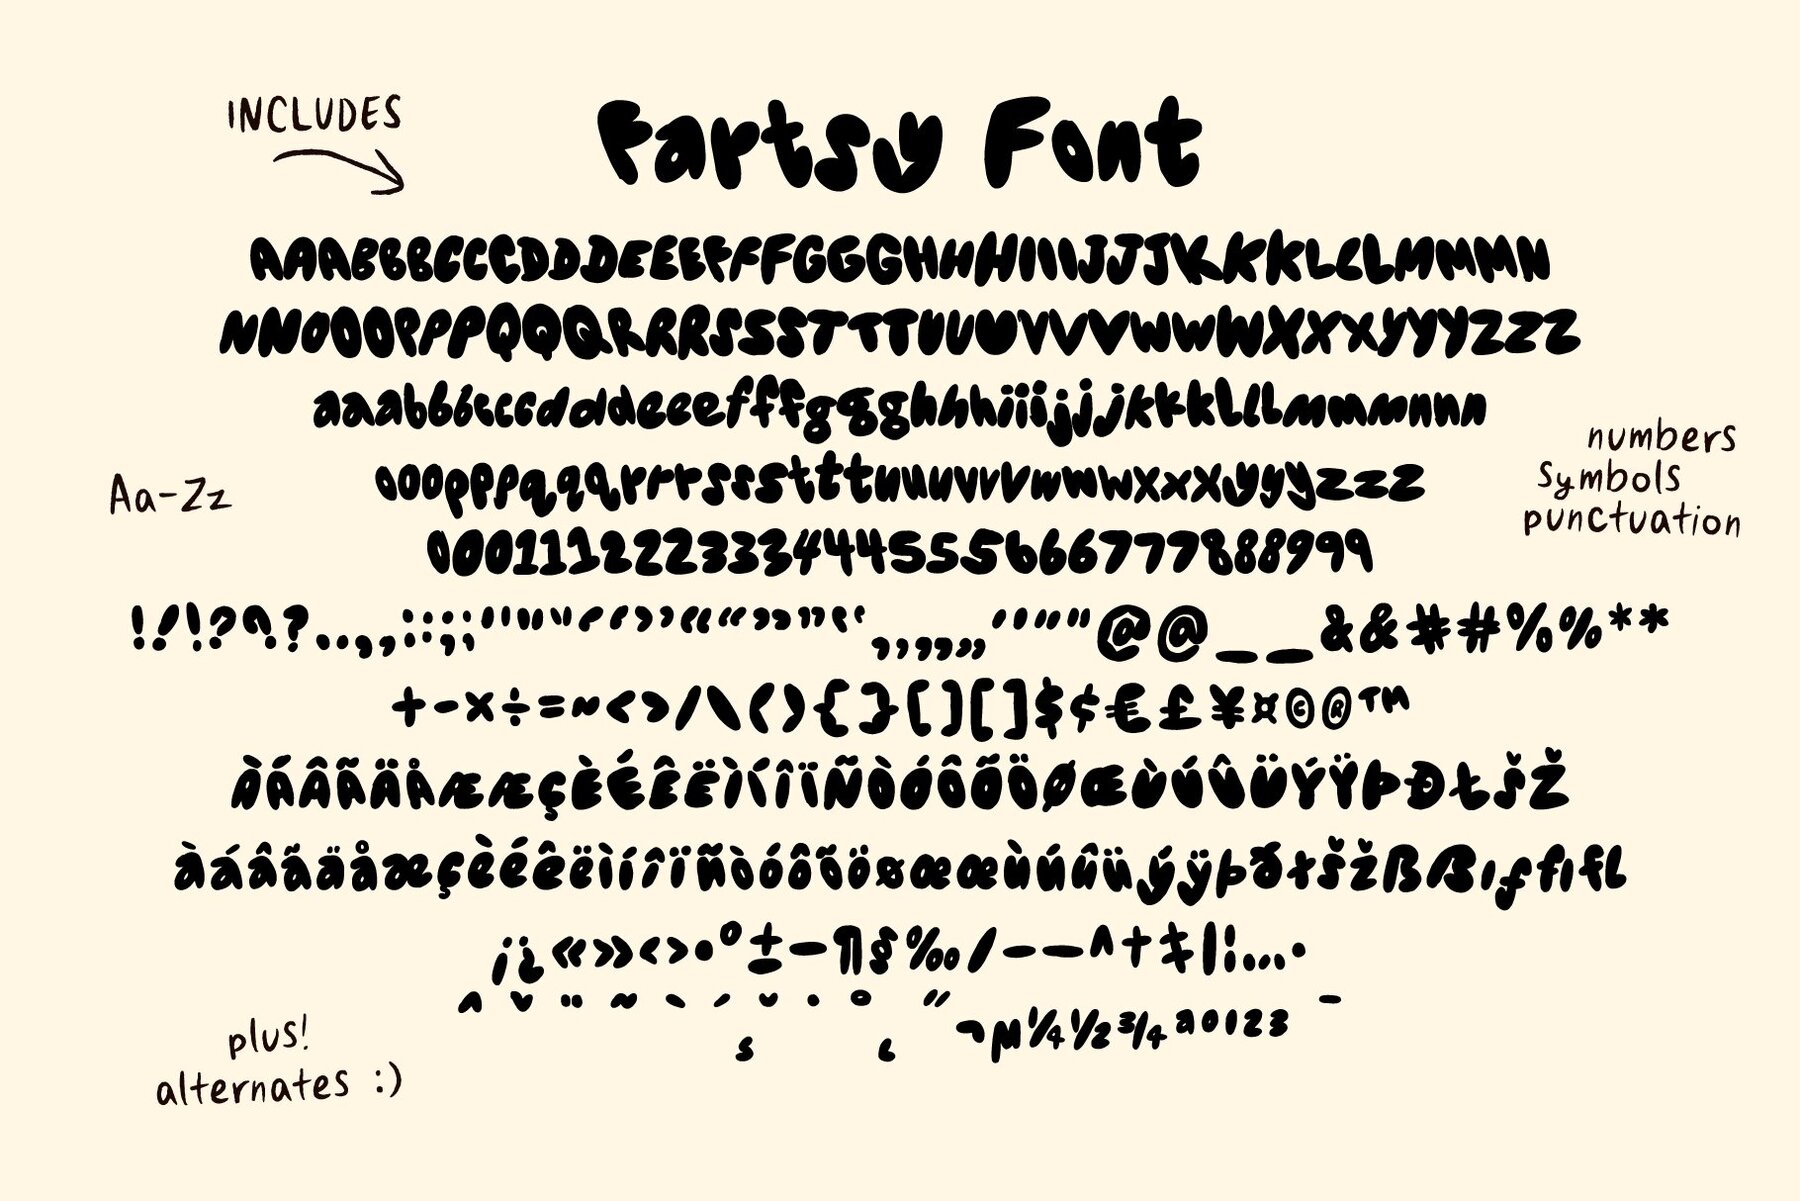 INCLUDES
Fartsy Font
AAABBBCCCDDDEEEFFFGGGHHHIIIJJJKKKLLLMMMN
NNOOOPPPQQQRRRSSSTTTUUUVVVWWWXXXYYYZZZ
aaabbbcccdddeeefffggghhhiiijjjkkklllmmmnnn
Aa-Zz
ooopppqqqrrrssstttuuuvvvwwwxxxyyyzzz
numbers
symbols
punctuation
000111222333444555666777888999
!!!???..,,::;;''""''‘‘’’““””‚‚„„''""@@__&&##%%**
+-×÷=~<>/\(){}[][]$¢€£¥¤©®™
ÀÁÂÃÄÅÆÆÇÈÉÊËÌÍÎÏÑÒÓÔÕÖØŒÙÚÛÜÝŸÞÐŁŠŽ
àáâãäåæçèéêëìíîïñòóôõöøœœùúûüýÿþðłšžßßıƒfifl
¡¿«»‹›•º±−¶§‰⁄–—^†‡|¦…·
ˆ ˇ ¨ ˜ ` ´ ˘ ˙ ˚ ˝ ¯
¸ ˛ ¬µ¼½¾ªº¹²³
plus!
alternates :)